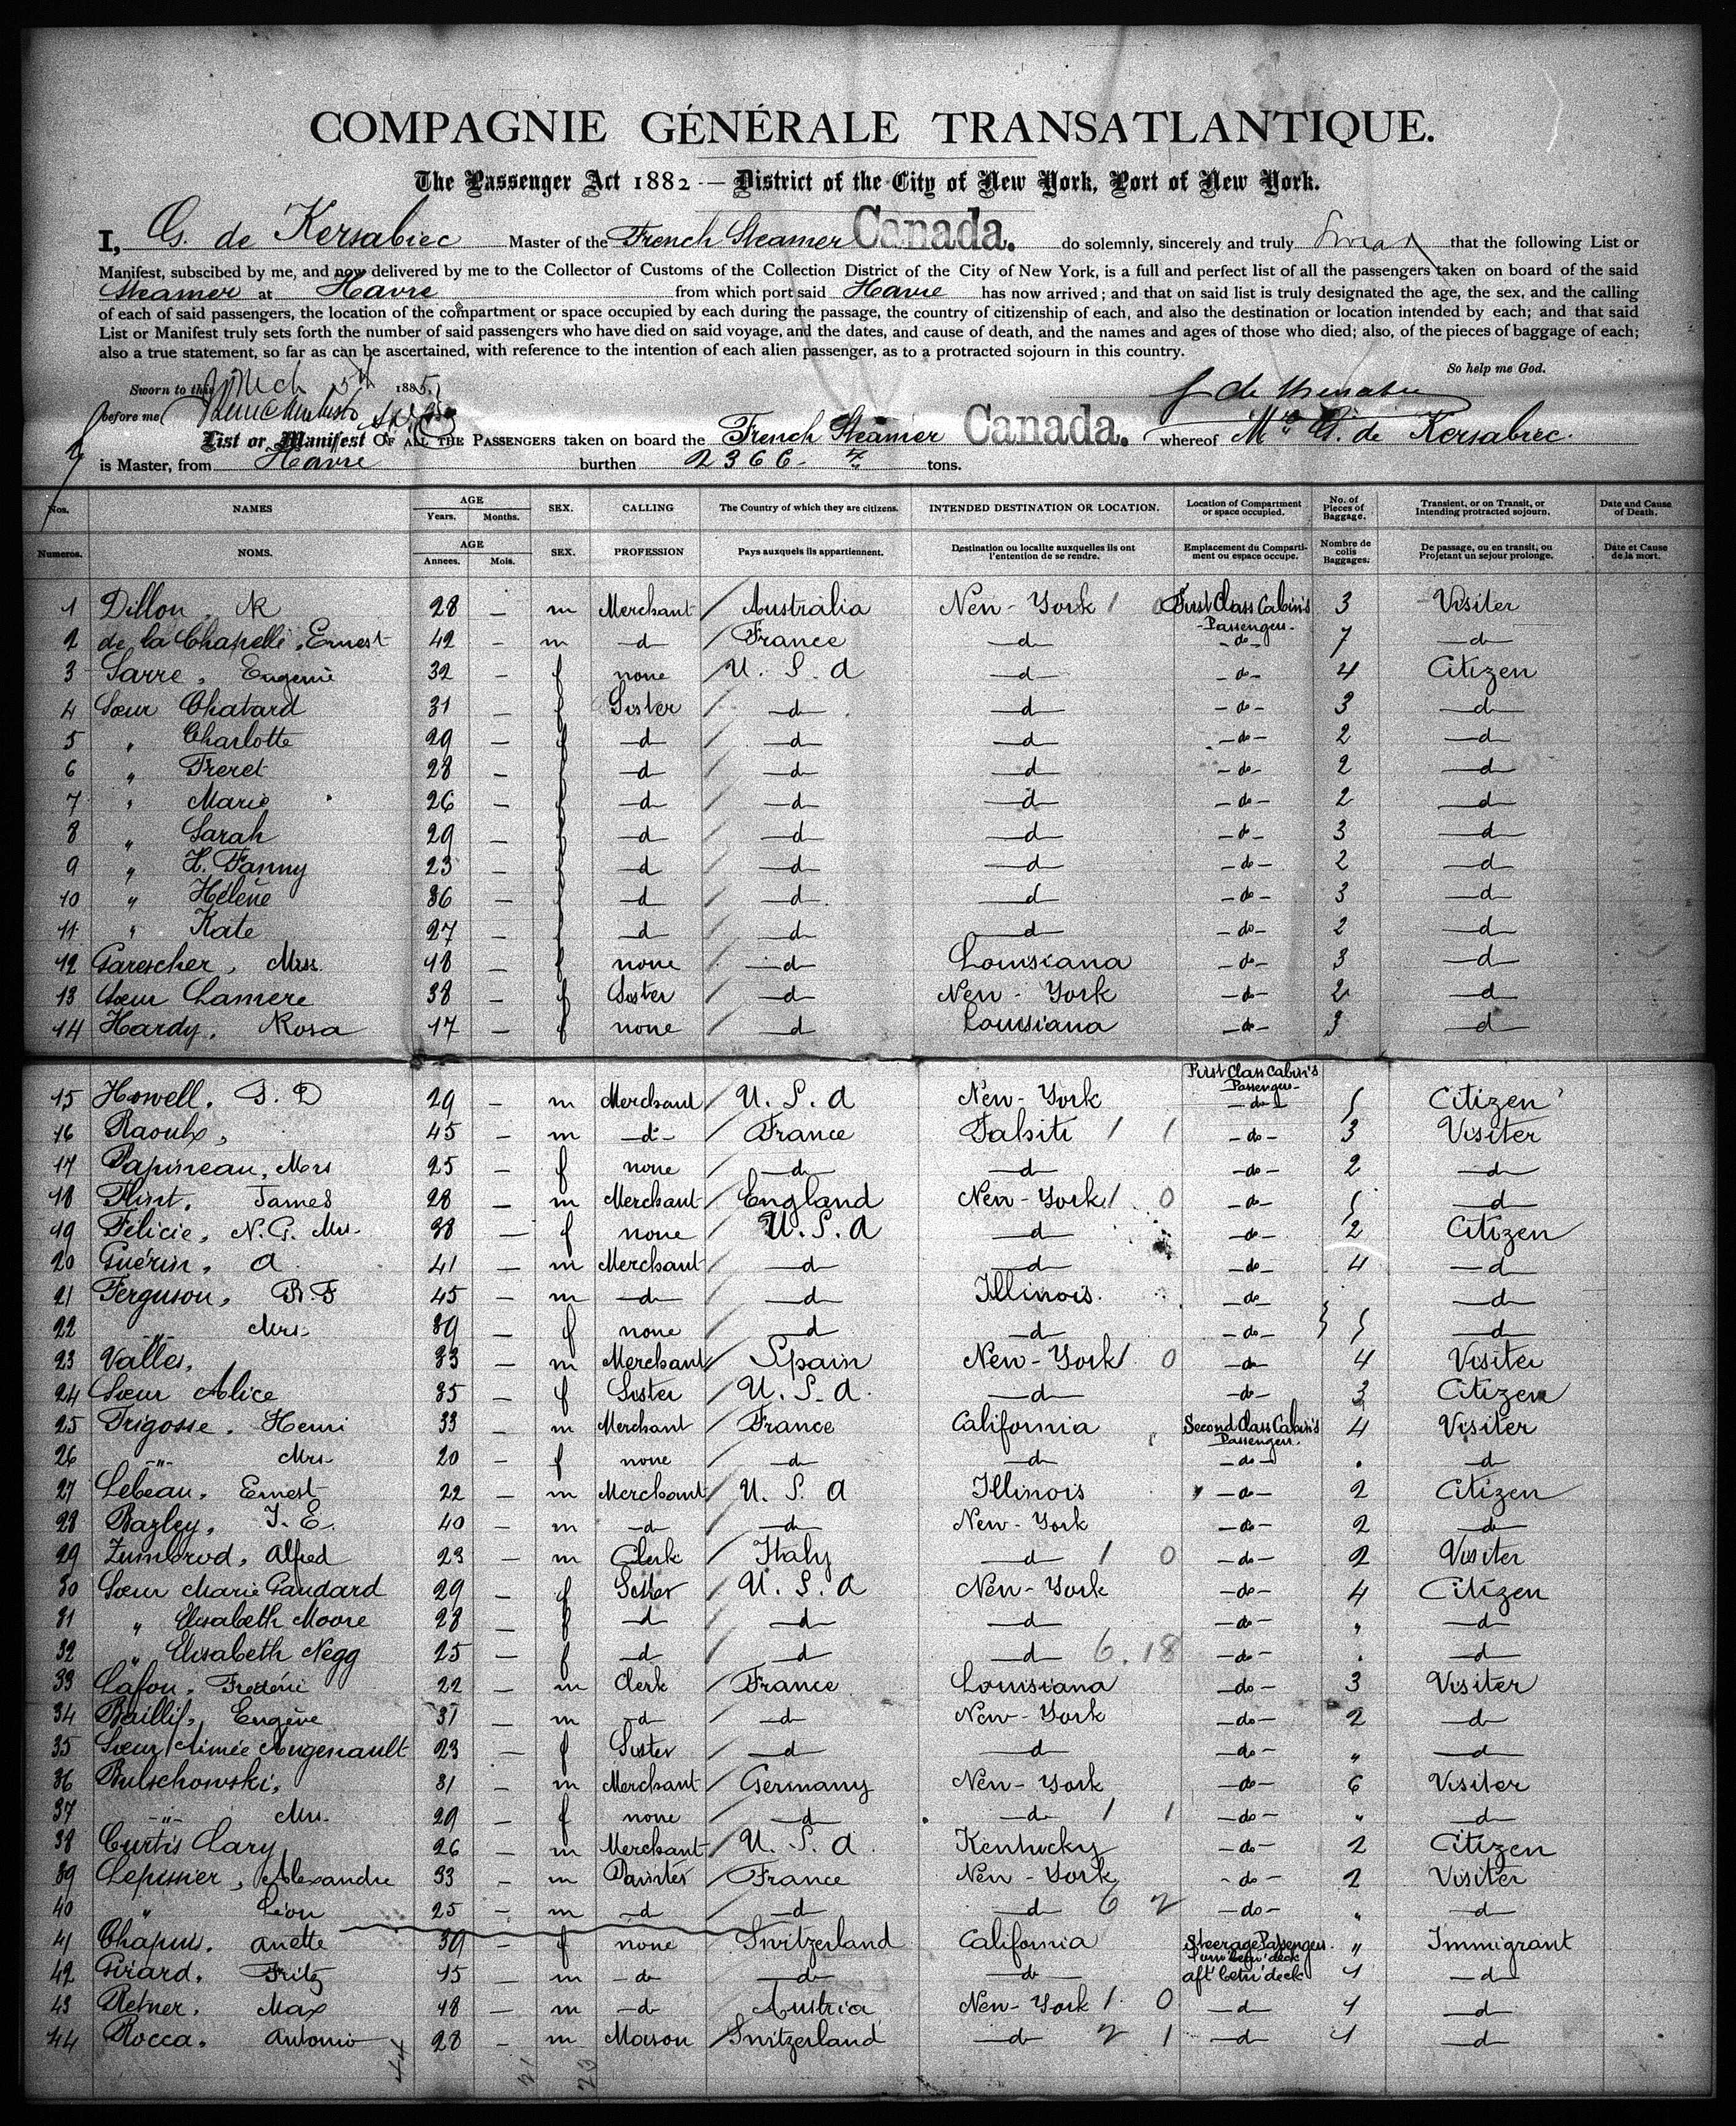 COMPAGNIE GÉNÉRALE TRANSATLANTIQUE.
The Passenger Act 1882 — District of the City of New York, Port of New York.
I, G. de Kersabiec Master of the French Steamer Canada. do solemnly, sincerely and truly Swear that the following List or
Manifest, subscibed by me, and now delivered by me to the Collector of Customs of the Collection District of the City of New York, is a full and perfect list of all the passengers taken on board of the said
Steamer at Havre from which port said Havre has now arrived; and that on said list is truly designated the age, the sex, and the calling
of each of said passengers, the location of the compartment or space occupied by each during the passage, the country of citizenship of each, and also the destination or location intended by each; and that said
List or Manifest truly sets forth the number of said passengers who have died on said voyage, and the dates, and cause of death, and the names and ages of those who died; also, of the pieces of baggage of each;
also a true statement, so far as can be ascertained, with reference to the intention of each alien passenger, as to a protracted sojourn in this country.
So help me God.
Sworn to this Mch 5th 1885,
before me
List or Manifest OF ALL THE PASSENGERS taken on board the French Steamer Canada. whereof Mr G. de Kersabiec.
is Master, from Havre burthen 2366 tons.
Nos. NAMES AGE Years. Months. SEX. CALLING The Country of which they are citizens. INTENDED DESTINATION OR LOCATION. Location of Compartment or space occupied. No. of Pieces of Baggage. Transient, or on Transit, or Intending protracted sojourn. Date and Cause of Death.
Numeros. NOMS. AGE Annees. Mois. SEX. PROFESSION Pays auxquels ils appartiennent. Destination ou localite auxquelles ils ont l'entention de se rendre. Emplacement du Compartiment ou espace occupe. Nombre de colis Baggages. De passage, ou en transit, ou Projetant un sejour prolonge. Date et Cause de la mort.
1 Dillon, R 28 — m Merchant Australia New-York 1 0 First Class Cabin's Passengers. 3 Visiter
2 de la Chapelle, Ernest 42 — m —d— France —d— —do— 7 —d—
3 Sarre, Eugenie 32 — f none U. S. A —d— —do— 4 Citizen
4 Sœur Chatard 31 — f Sister —d— —d— —do— 3 —d—
5 " Charlotte 29 — f —d— —d— —d— —do— 2 —d—
6 " Freret 28 — f —d— —d— —d— —do— 2 —d—
7 " Marie 26 — f —d— —d— —d— —do— 2 —d—
8 " Sarah 29 — f —d— —d— —d— —do— 3 —d—
9 " H. Fanny 23 — f —d— —d— —d— —do— 2 —d—
10 " Hélène 36 — f —d— —d— —d— —do— 3 —d—
11 " Kate 27 — f —d— —d— —d— —do— 2 —d—
12 Garescher, Mrs. 48 — f none —d— Louisiana —do— 3 —d—
13 Sœur Lamere 38 — f Sister —d— New-York —do— 2 —d—
14 Hardy, Rosa 17 — f none —d— Louisiana —do— 3 —d—
First Class Cabin's Passengers
15 Howell, S. D 29 — m Merchant U. S. A New-York —do— Citizen
16 Raoulx, 45 — m —d— France Tahiti 1 1 —do— 3 Visiter
17 Papineau, Mrs 25 — f none —d— —d— —do— 2 —d—
18 Flint, James 28 — m Merchant England New-York 1 0 —do— —d—
19 Félicie, N. G. Mrs. 38 — f none U. S. A —d— —do— 2 Citizen
20 Guérin, A 41 — m Merchant —d— —d— —do— 4 —d—
21 Ferguson, B. F 45 — m —d— —d— Illinois. —do— —d—
22 —"— Mrs. 39 — f none —d— —d— —do— —d—
23 Valles, 33 — m Merchant Spain New-York 1 0 —do— 4 Visiter
24 Sœur Alice 35 — f Sister U. S. A. —d— —do— 3 Citizen
25 Trigosse, Henri 33 — m Merchant France California Second Class Cabin's Passengers. 4 Visiter
26 —"— Mrs. 20 — f none —d— —d— —do— —d—
27 Lebeau, Ernest 22 — m Merchant U. S. A Illinois —do— 2 Citizen
28 Bazley, J. E. 40 — m —d— —d— New-York —do— 2 —d—
29 Zumbrod, Alfred 23 — m Clerk Italy —d— 1 0 —do— 2 Visiter
30 Sœur Marie Gaudard 29 — f Sister U. S. A New-York —do— 4 Citizen
31 " Elisabeth Moore 28 — f —d— —d— —d— —do— " —d—
32 " Elisabeth Negg 25 — f —d— —d— —d— 6. 18 —do— " —d—
33 Lafon, Frédéric 22 — m Clerk France Louisiana —do— 3 Visiter
34 Baillif, Eugène 31 — m —d— —d— New-York —do— 2 —d—
35 Sœur Aimée Angenault 23 — f Sister —d— —d— —do— " —d—
36 Bulschowski, 31 — m Merchant Germany New-York —do— 6 Visiter
37 —"— Mrs. 29 — f none —d— —d— 1 1 —do— " —d—
38 Curtis Cary 26 — m Merchant U. S. A. Kentucky —do— 2 Citizen
39 Lepinier, Alexandre 33 — m Painter France New-York —do— 2 Visiter
40 " Léon 25 — m —d— —d— —d— 6 2 —do— " —d—
41 Chapuis, Anette 30 — f none Switzerland California Steerage Passengers. " Immigrant
42 Girard, Fritz 15 — m —do— —d— —do— aft betw' deck 1 —d—
43 Retner, Max 48 — m —do— Austria New-York 1 0 —d— 1 —d—
44 Rocca, Antonio 28 — m Mason Switzerland —d— 2 1 —d— 1 —d—
44 21 23